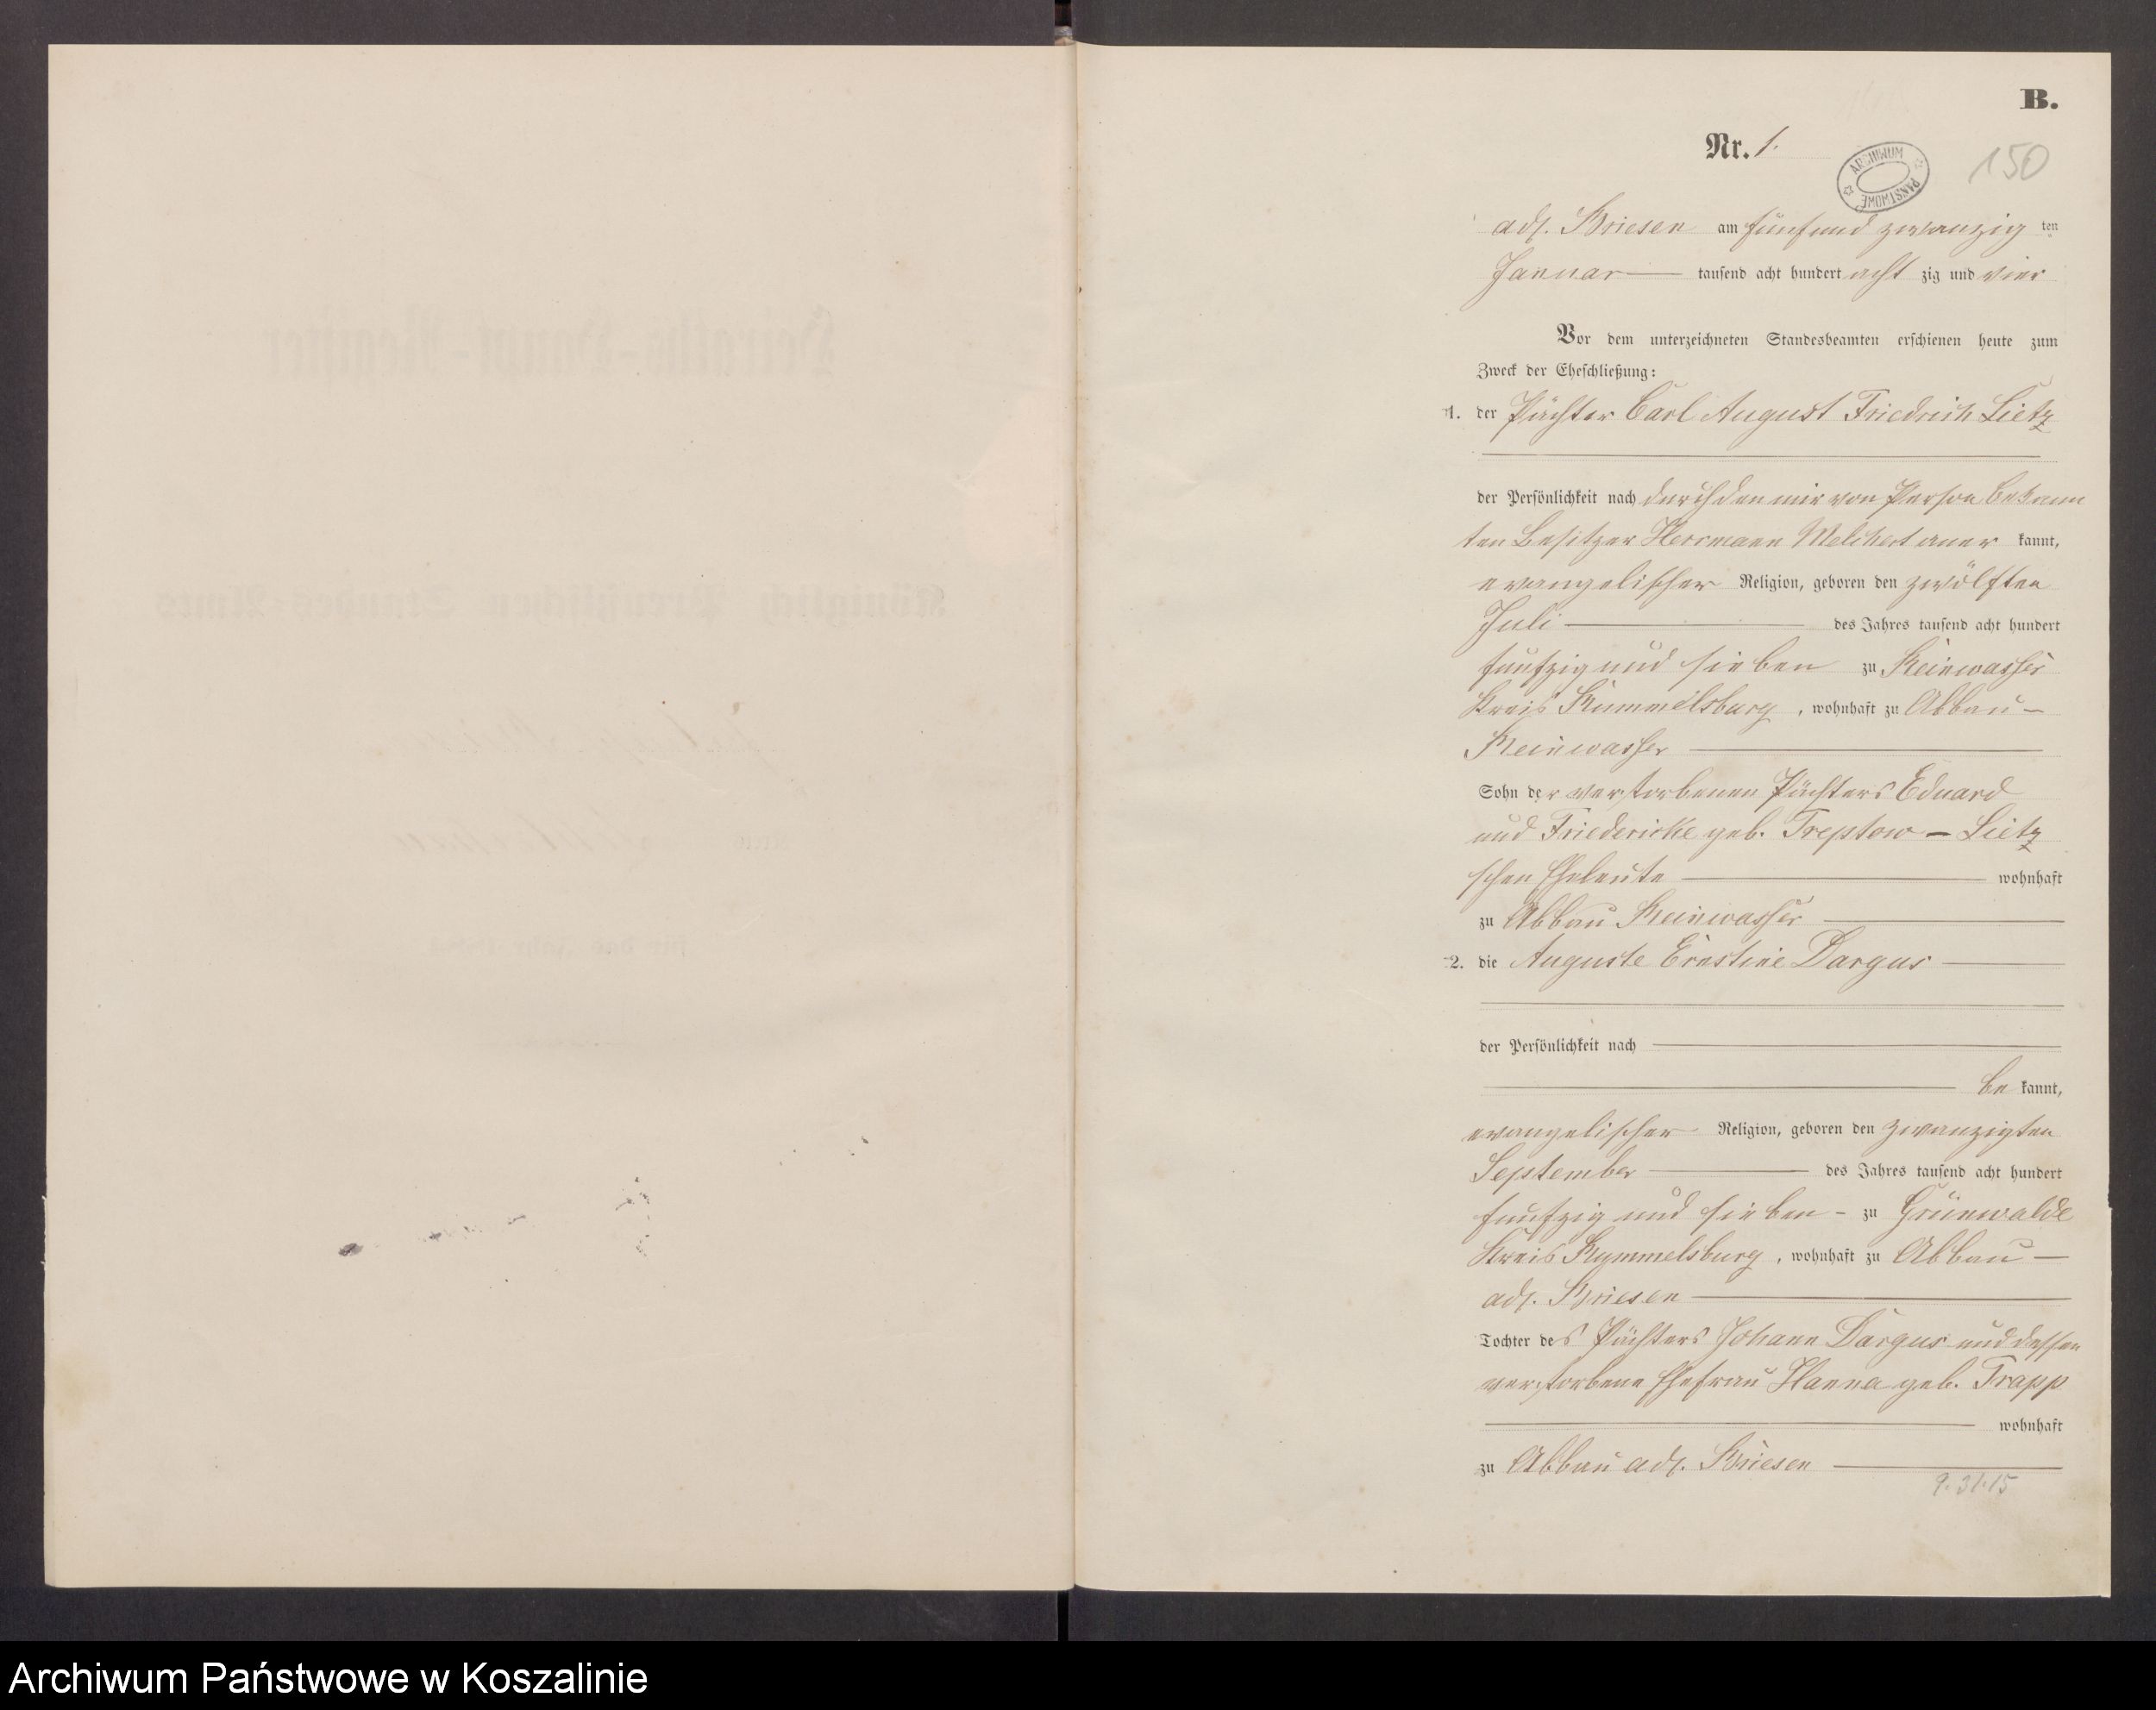 B.
Nr. 1.
ARCHIWUM PAŃSTWOWE
150
adl. Briesen am fünfund zwanzig ten
Januar tausend acht hundert acht zig und vier
Vor dem unterzeichneten Standesbeamten erschienen heute zum
Zweck der Eheschließung:
1. der Pächter Carl August Friedrich Lietz
der Persönlichkeit nach durch den mir von Person bekann
ten Besitzer Herrmann Melchert aner kannt,
evangelischer Religion, geboren den zwölften
Juli des Jahres tausend acht hundert
funfzig und sieben zu Reinwasser
Kreis Rummelsburg, wohnhaft zu Abbau-
Reinwasser
Sohn der verstorbenen Pächters Eduard
und Friedericke geb. Treptow - Lietz
schen Eheleute wohnhaft
zu Abbau Reinwasser
2. die Auguste Ernstine Dargus
der Persönlichkeit nach
be kannt,
evangelischer Religion, geboren den zwanzigten
September des Jahres tausend acht hundert
funfzig und sieben - zu Grünwalde
Kreis Rummelsburg, wohnhaft zu Abbau -
adl. Briesen
Tochter des Pächters Johann Dargus und dessen
verstorbene Ehefrau Hanna geb. Trapp
wohnhaft
zu Abbau adl. Briesen
9.31.15
Archiwum Państwowe w Koszalinie